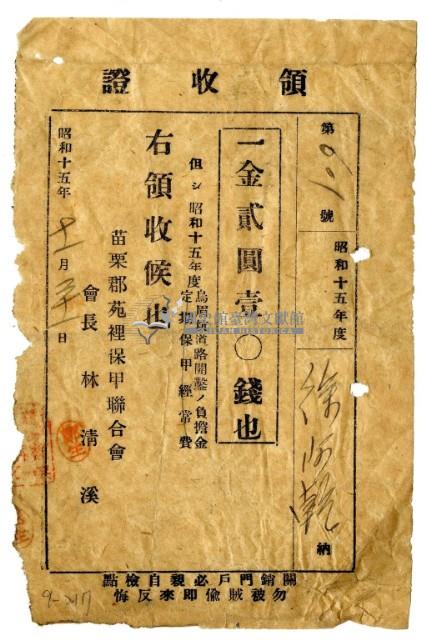 領收證
第 號
昭和十五年度
徐 乾 納
一金貳圓壹〇錢也
但シ昭和十五年度烏眉坑道路開鑿ノ負擔金
定規保甲經常費
右領收候也
昭和十五年 月 日
苗栗郡苑裡保甲聯合會
會長 林清溪
關鎖門戶必親自檢點
勿被賊偷即來反悔
國史館臺灣文獻館
TAIWAN HISTORICA